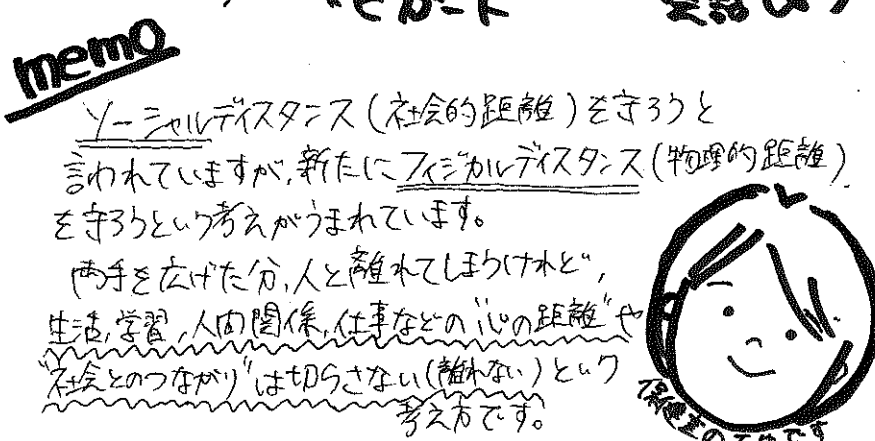 memo
ソーシャルディスタンス(社会的距離)を守ろうと
言われていますが、新たにフィジカルディスタンス(物理的距離)
を守ろうという考えがうまれています。
両手を広げた分、人と離れてしまうけれど、
生活、学習、人間関係、仕事などの“心の距離”や
“社会とのつながり”は切らさない(離れない)という
考え方です。